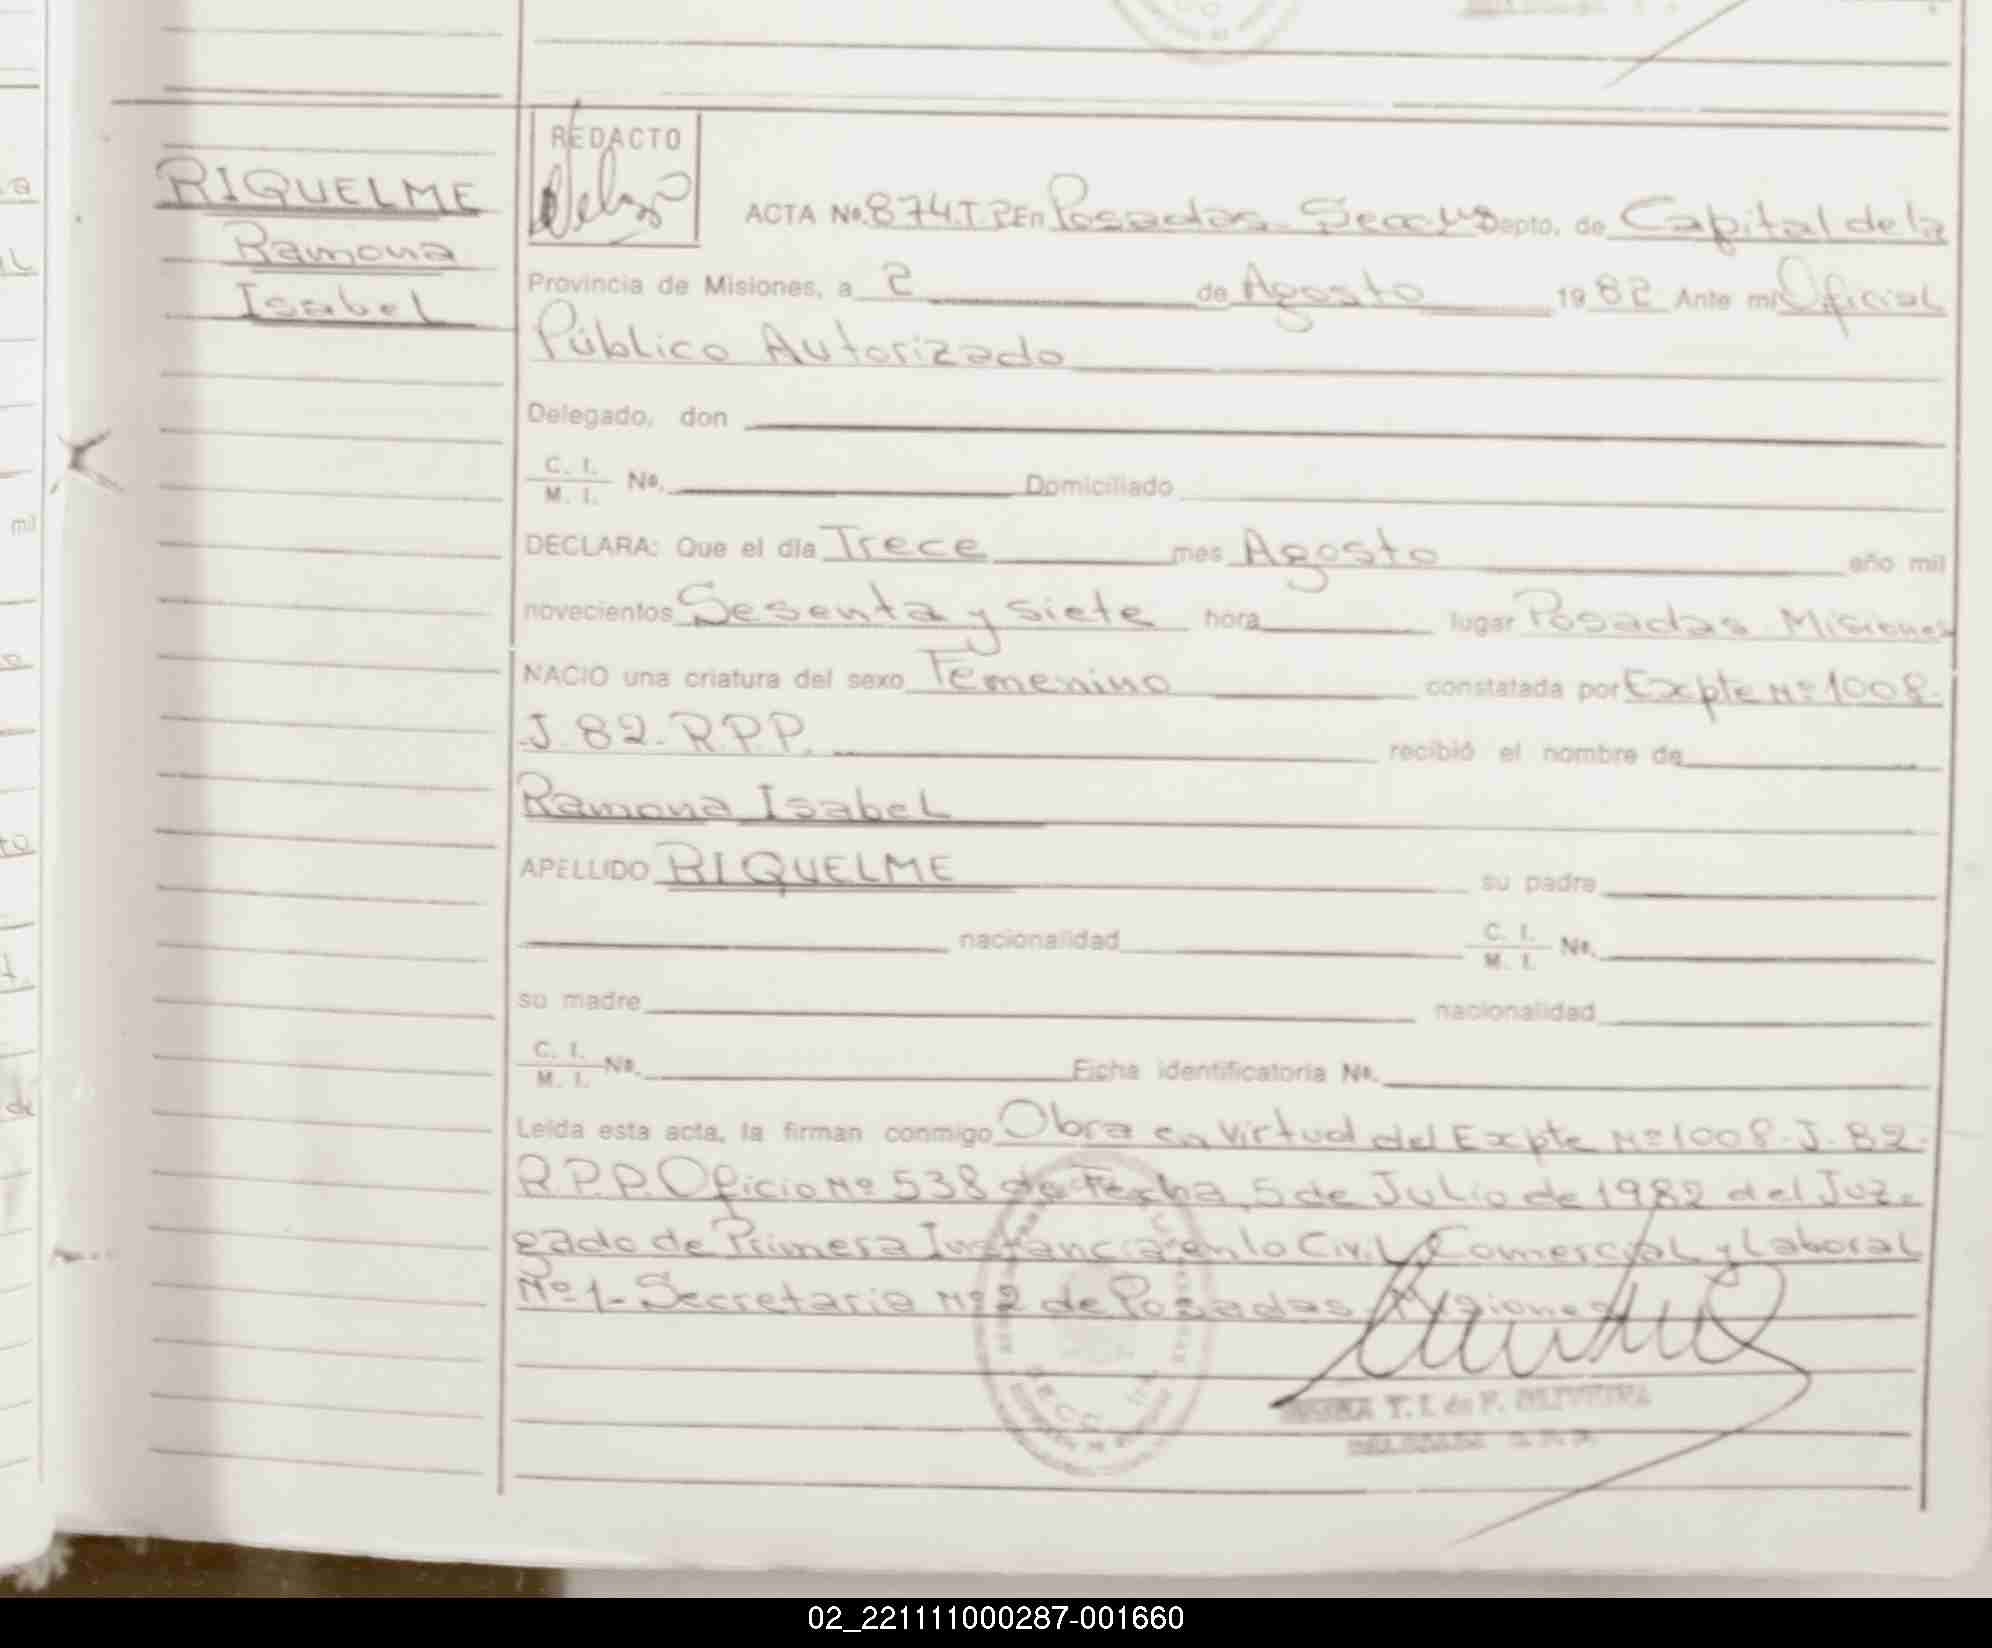 REDACTO
RIQUELME
Ramona
Isabel
ACTA No. 874.T. En Posadas Depto. de Capital de la
Provincia de Misiones, a 2 de Agosto 1982 Ante mi Oficial
Público Autorizado
Delegado, don
C. I.
M. I. No. Domiciliado
DECLARA: Que el día Trece mes Agosto año mil
novecientos Sesenta y siete hora lugar Posadas Misiones
NACIO una criatura del sexo Femenino constatada por Expte Nº 1008.
J. 82. R.P.P. recibió el nombre de
Ramona Isabel
APELLIDO RIQUELME su padre
nacionalidad C. I.
M. I. No.
su madre nacionalidad
C. I.
M. I. No. Ficha identificatoria No.
Leída esta acta, la firman conmigo Obra en virtud del Expte Nº 1008. J. 82.
R.P.P. Oficio Nº 538 de Fecha, 5 de Julio de 1982 del Juz-
gado de Primera Instancia en lo Civil, Comercial y Laboral
Nº 1- Secretaria Nº 2 de Posadas Misiones
T. I. de F. OLIVEIRA
mil
de
02_221111000287-001660